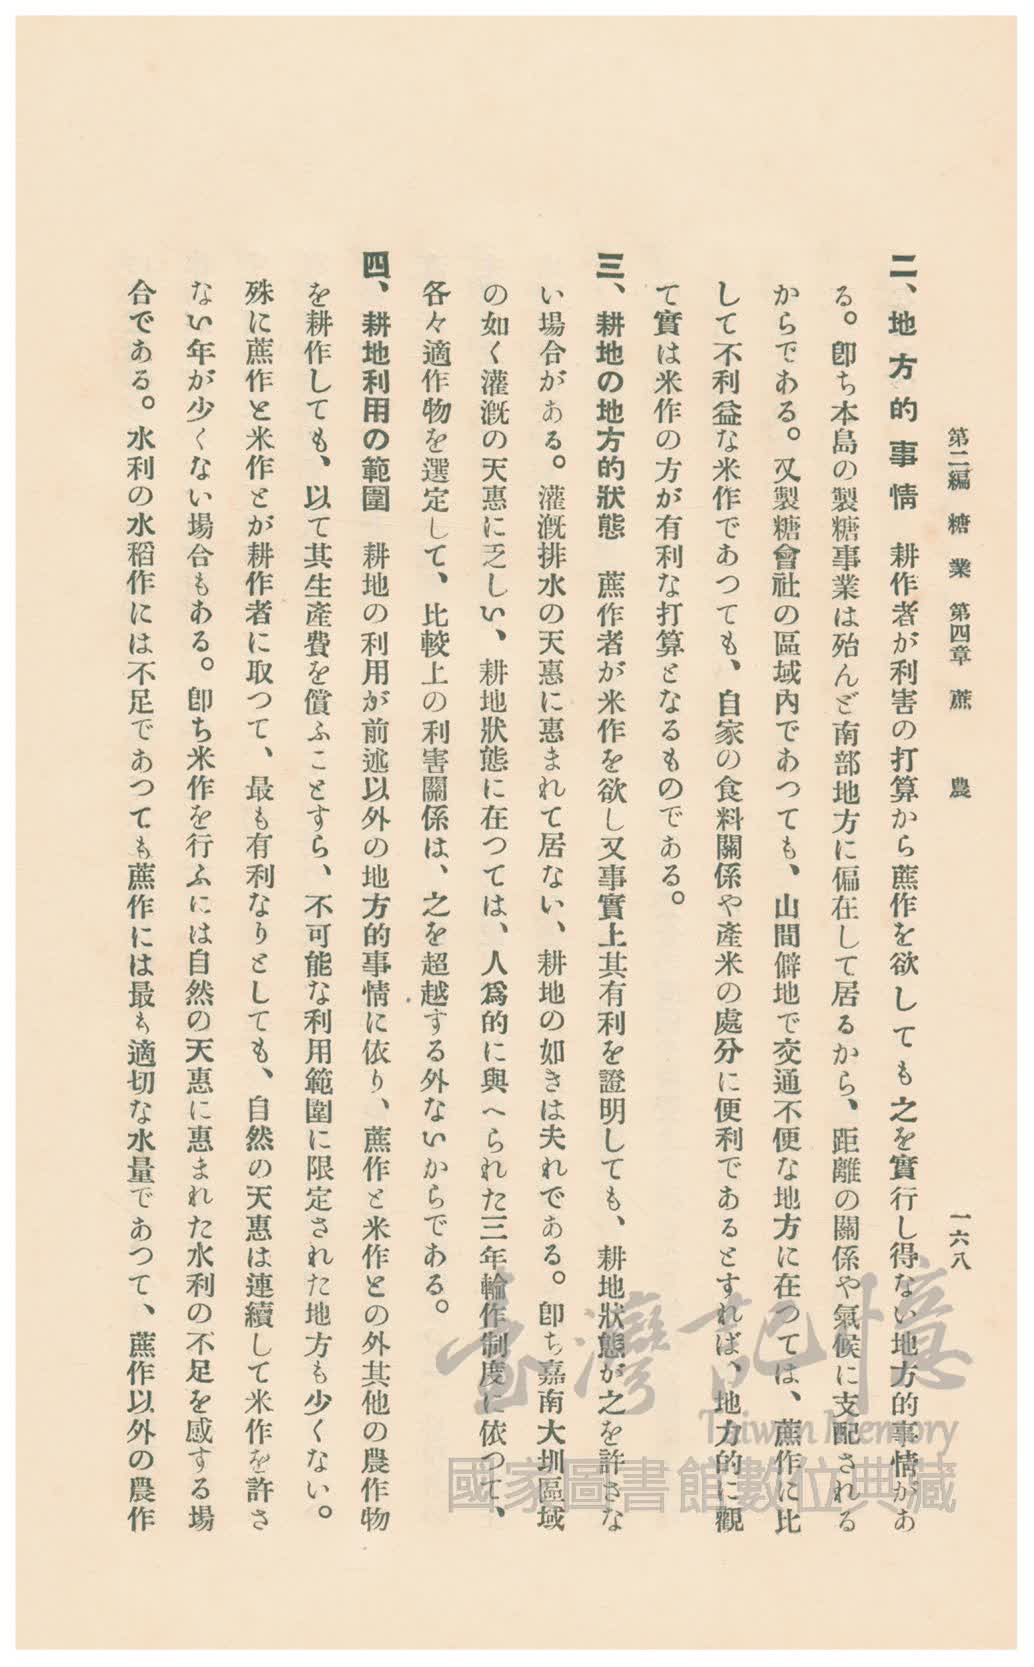 第二編　糖　業　第四章　蔗　農　一六八
二、地方的事情　耕作者が利害の打算から蔗作を欲しても之を實行し得ない地方的事情があ
る。卽ち本島の製糖事業は殆んど南部地方に偏在して居るから、距離の關係や氣候に支配される
からである。又製糖會社の區域內であつても、山間僻地で交通不便な地方に在つては、蔗作に比
して不利益な米作であつても、自家の食料關係や產米の處分に便利であるとすれば、地方的に觀
て實は米作の方が有利な打算となるものである。
三、耕地の地方的狀態　蔗作者が米作を欲し又事實上其有利を證明しても、耕地狀態が之を許さな
い場合がある。灌漑排水の天惠に惠まれて居ない、耕地の如きは夫れである。卽ち嘉南大圳區域
の如く灌漑の天惠に乏しい、耕地狀態に在つては、人爲的に與へられた三年輪作制度に依つて、
各々適作物を選定して、比較上の利害關係は、之を超越する外ないからである。
四、耕地利用の範圍　耕地の利用が前述以外の地方的事情に依り、蔗作と米作との外其他の農作物
を耕作しても、以て其生產費を償ふことすら、不可能な利用範圍に限定された地方も少くない。
殊に蔗作と米作とが耕作者に取つて、最も有利なりとしても、自然の天惠は連續して米作を許さ
ない年が少くない場合もある。卽ち米作を行ふには自然の天惠に惠まれた水利の不足を感する場
合である。水利の水稻作には不足であつても蔗作には最も適切な水量であつて、蔗作以外の農作
臺灣記憶
Taiwan Memory
國家圖書館數位典藏